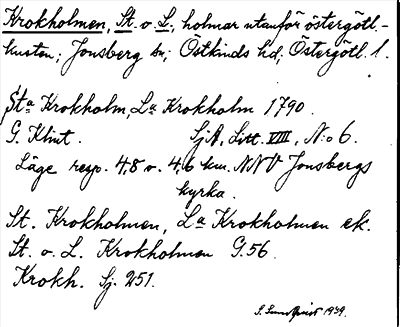 Krokholmen, St. o. L., holmar utanför östergötl.-
kusten; Jonsberg sn; Östkinds hd; Östergötl. l.
Sta Krokholm, La Krokholm 1790.
G. Klint. SjA, Litt. VIII, No 6.
Läge resp. 4,8 o. 4,6 km. NNV Jonsbergs
kyrka.
St. Krokholmen, La Krokholmen ek.
St. o. L. Krokholmen G.56.
Krokh. Sj. 251.
S. 1939.